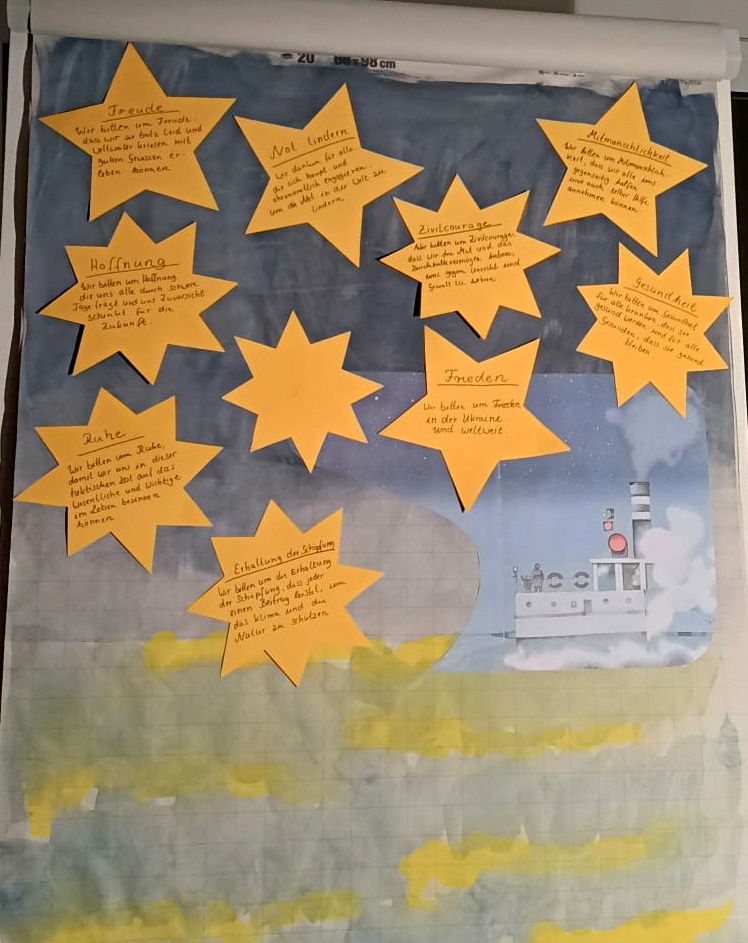 20 68x98 cm
Freude
Wir bitten um Freude,
dass wir sie trotz Leid und
weltweiter Kriesen mit
guten Grüssen er-
leben können
Not lindern
Wir danken für alle
die sich haupt- und
ehrenamtlich engagieren,
um die Not in der Welt zu
lindern
Mitmenschlichkeit
Wir bitten um Mitmenschlich-
keit, dass wir alle uns
gegenseitig helfen
und auch selber Hilfe
annehmen können
Zivilcourage
Wir bitten um Zivilcourage,
dass wir den Mut und das
Durchhaltevermögen haben,
uns gegen Unrecht und
Gewalt zu wehren
Hoffnung
Wir bitten um Hoffnung
die uns alle durch schwere
Tage trägt und uns Zuversicht
schenkt für die
Zukunft.
Gesundheit
Wir bitten um Gesundheit
für alle Kranken, dass sie
gesund werden und für alle
Gesunden, dass sie gesund
bleiben
Frieden
Wir bitten um Frieden
in der Ukraine
und weltweit.
Ruhe
Wir bitten um Ruhe,
damit wir uns in dieser
hektischen Zeit auf das
Wesentliche und Wichtige
im Leben besinnen
können
Erhaltung der Schöpfung
Wir bitten um die Erhaltung
der Schöpfung, dass jeder
einen Beitrag leistet, um
das Klima und die
Natur zu schützen